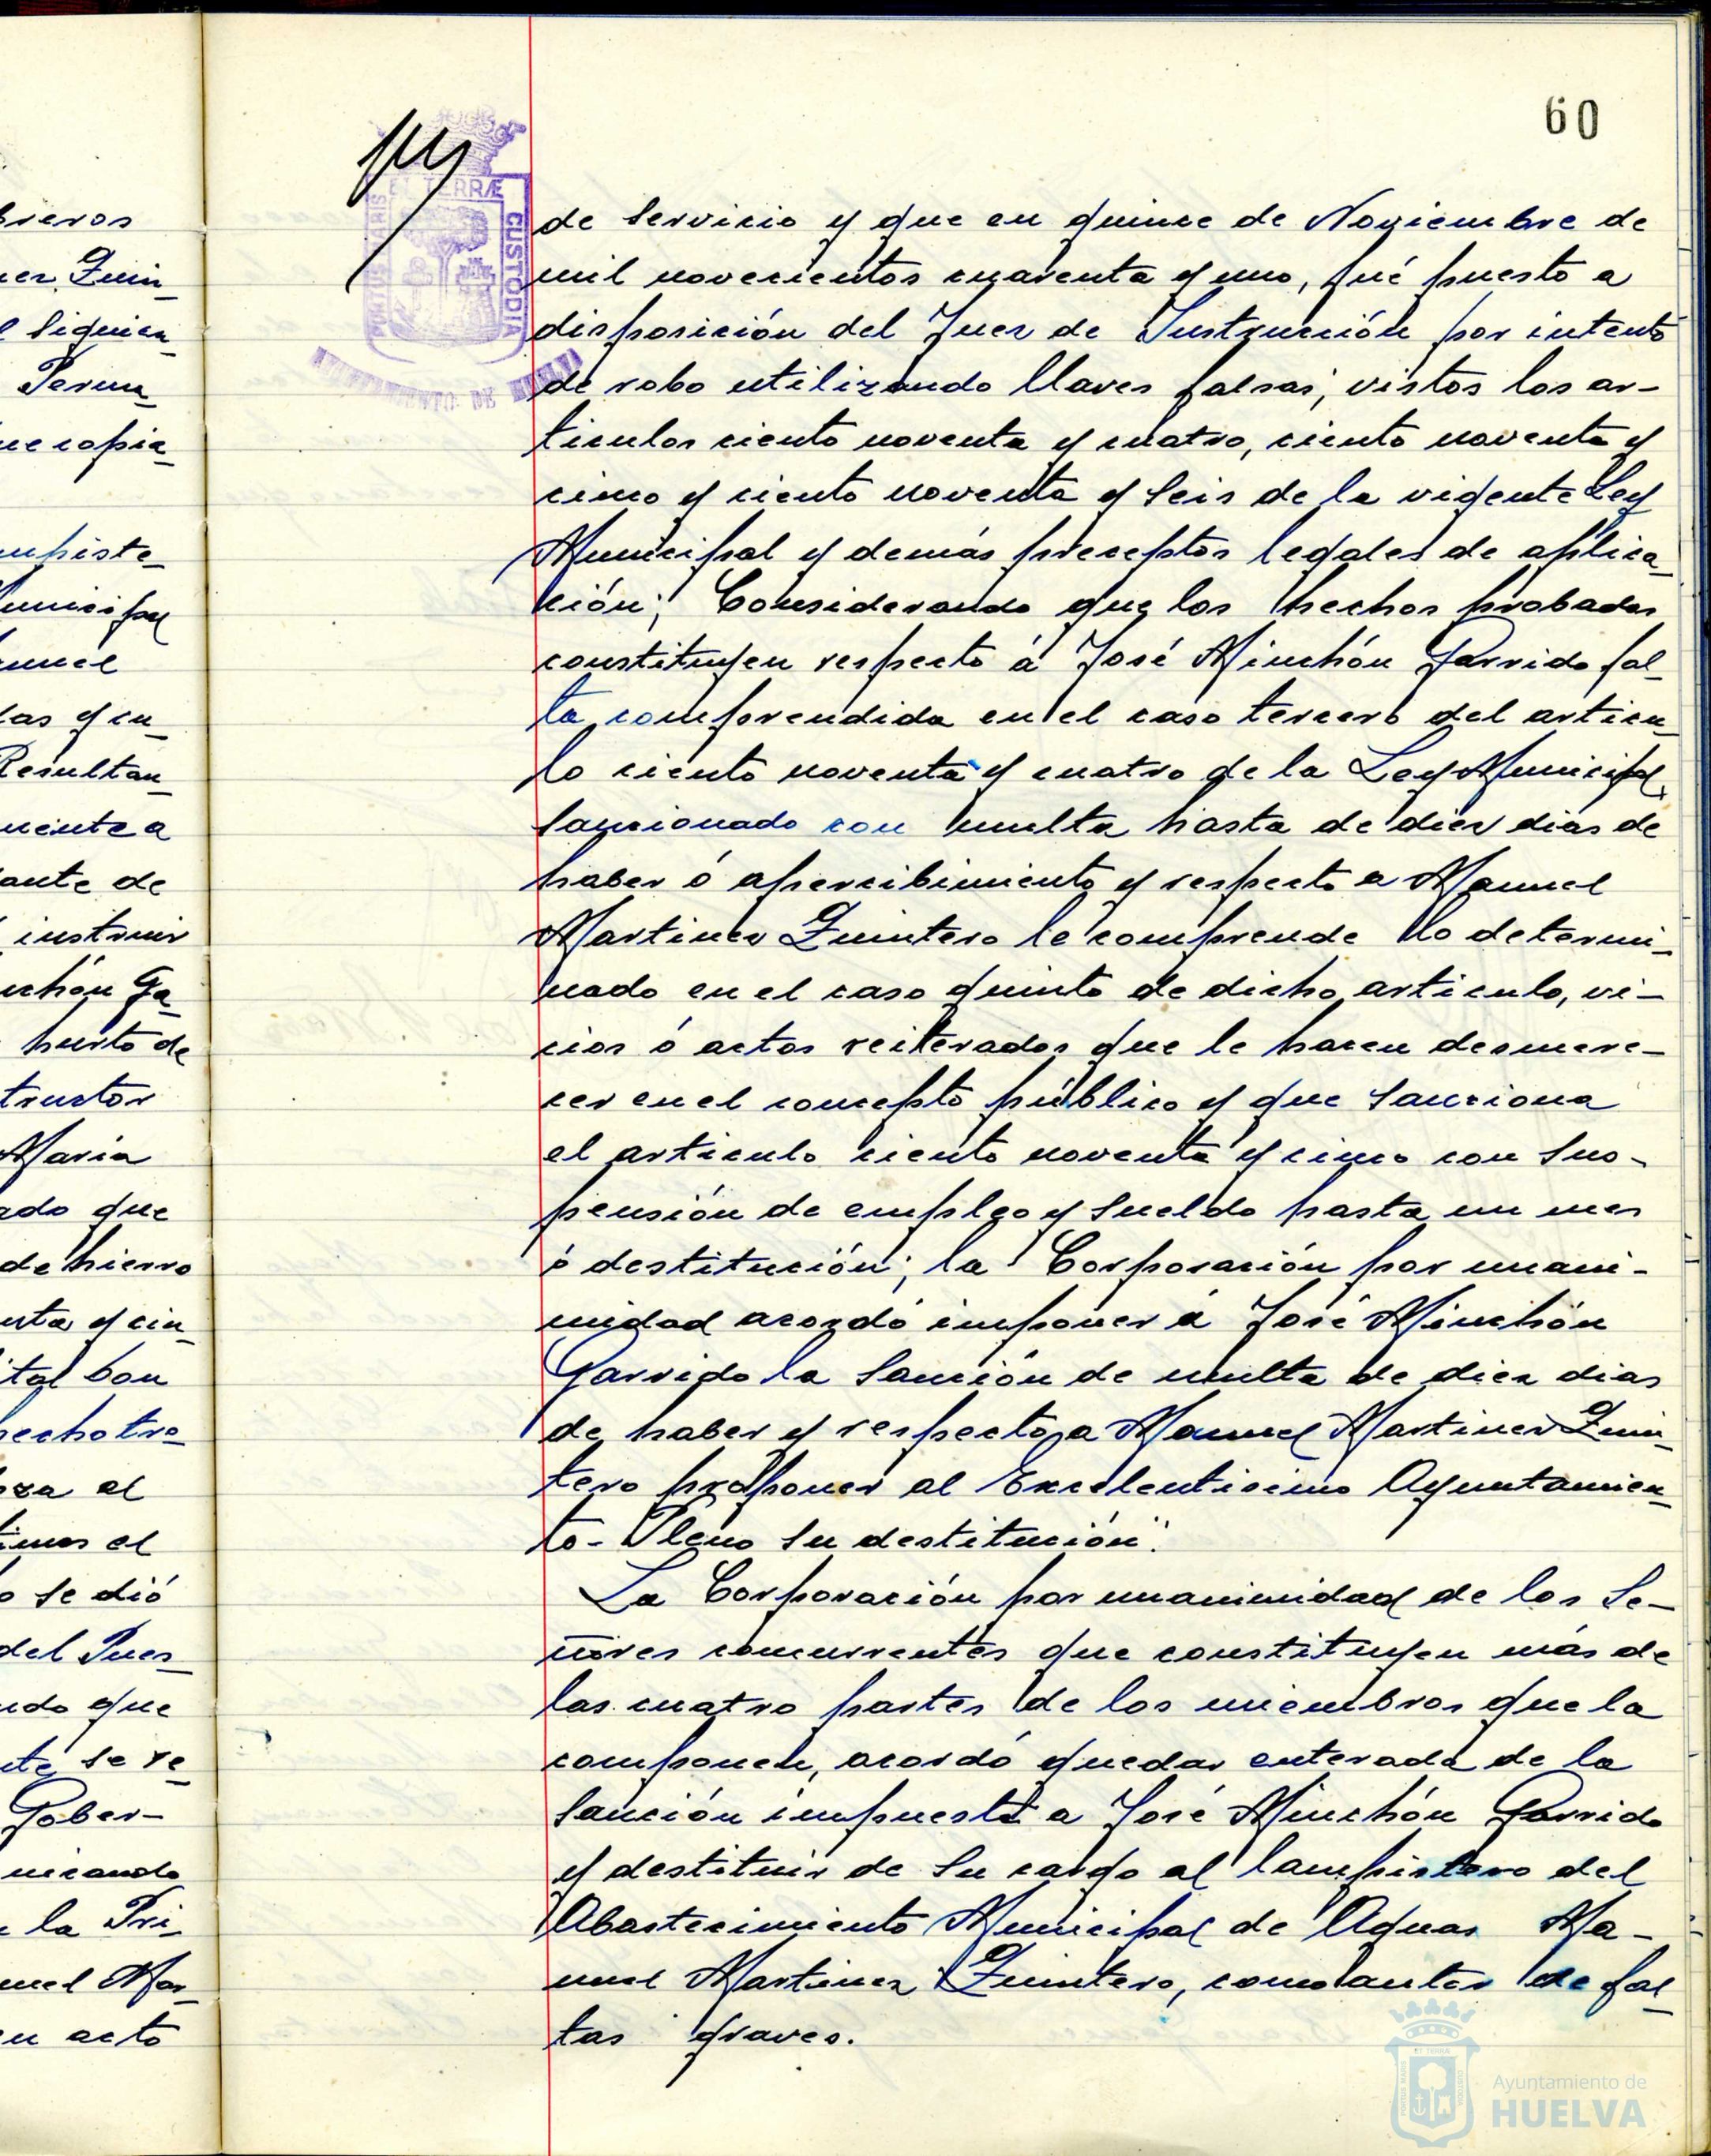 breros
nez Quin_
l siguien_
Perma_
ue copia_
mpiste_
unicipal
anuel
las y en_
Resultan_
mente a
ante de
instruir
nchón Ga_
hurto de
tructor
María
ado que
de hierro
nta y cin_
ital ban
hecho tra_
nza el
timos el
o se dió
del Pues_
ndo que
te, se re_
Gober-
nicando
la Pri_
nuel Mar_
n acto
60
PORTUS MARIS
ET TERRÆ
CUSTODIA
AYUNTAMIENTO DE HUELVA
de servicio y que en quince de Noviembre de
mil novecientos cuarenta y uno, fué puesto a
disposición del Juez de Instrucción por intento
de robo utilizando llaves falsas; vistos los ar-
tículos ciento noventa y cuatro, ciento noventa y
cinco y ciento noventa y seis de la vigente Ley
Municipal y demás preceptos legales de aplica_
ción; Considerando que los hechos probados
constituyen respecto á José Minchón Garrido fal_
ta comprendida en el caso tercero del articu_
lo ciento noventa y cuatro de la Ley Municipal,
sancionado con multa hasta de diez dias de
haber ó apercibimiento y respecto a Manuel
Martinez Quintero le comprende lo determi_
nado en el caso quinto de dicho articulo, vi-
cios ó actos reiterados que le hacen desmere-
cer en el concepto público y que sanciona
el articulo ciento noventa y cinco con sus-
pensión de empleo y sueldo hasta un mes
ó destitución; la Corporación por unani-
midad acordó imponer á José Minchón
Garrido la sanción de multa de diez dias
de haber y respecto a Manuel Martinez Quin_
tero proponer al Excelentisimo Ayuntamien_
to-Pleno su destitución".
La Corporación por unanimidad de los Se-
ñores concurrentes que constituyen más de
las cuatro partes de los miembros que la
componen, acordó quedar enterada de la
sanción impuesta a José Minchón Garrido
y destituir de su cargo al lampistero del
Abastecimiento Municipal de Aguas Ma-
nuel Martinez Quintero, como autor de fal_
tas graves.
Ayuntamiento de
HUELVA